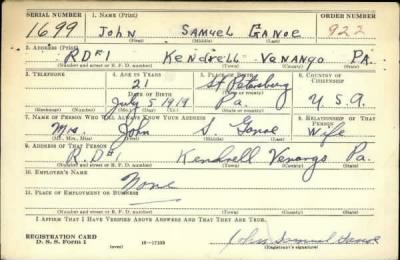 SERIAL NUMBER 1. NAME (Print) ORDER NUMBER
1699 John Samuel Ganoe 922
(First) (Middle) (Last)
2. ADDRESS (Print)
RD#1 Kendrell Venango Pa.
(Number and street or R. F. D. number) (Town) (County) (State)
3. TELEPHONE 4. AGE IN YEARS 5. PLACE OF BIRTH 6. COUNTRY OF CITIZENSHIP
21 St. Petersburg
DATE OF BIRTH (Town or county)
July 5 1919 Pa. U.S.A.
(Exchange) (Number) (Mo.) (Day) (Yr.) (State or country)
7. NAME OF PERSON WHO WILL ALWAYS KNOW YOUR ADDRESS 8. RELATIONSHIP OF THAT PERSON
Mrs. John S. Ganoe Wife
(Mr., Mrs., Miss) (First) (Middle) (Last)
9. ADDRESS OF THAT PERSON
R.D. Kendrell Venango Pa.
(Number and street or R. F. D. number) (Town) (County) (State)
10. EMPLOYER'S NAME
None
11. PLACE OF EMPLOYMENT OR BUSINESS
(Number and street or R. F. D. number) (Town) (County) (State)
I AFFIRM THAT I HAVE VERIFIED ABOVE ANSWERS AND THAT THEY ARE TRUE.
REGISTRATION CARD
D. S. S. Form 1 (over) 16—17105 John Samuel Ganoe
(Registrant's signature)